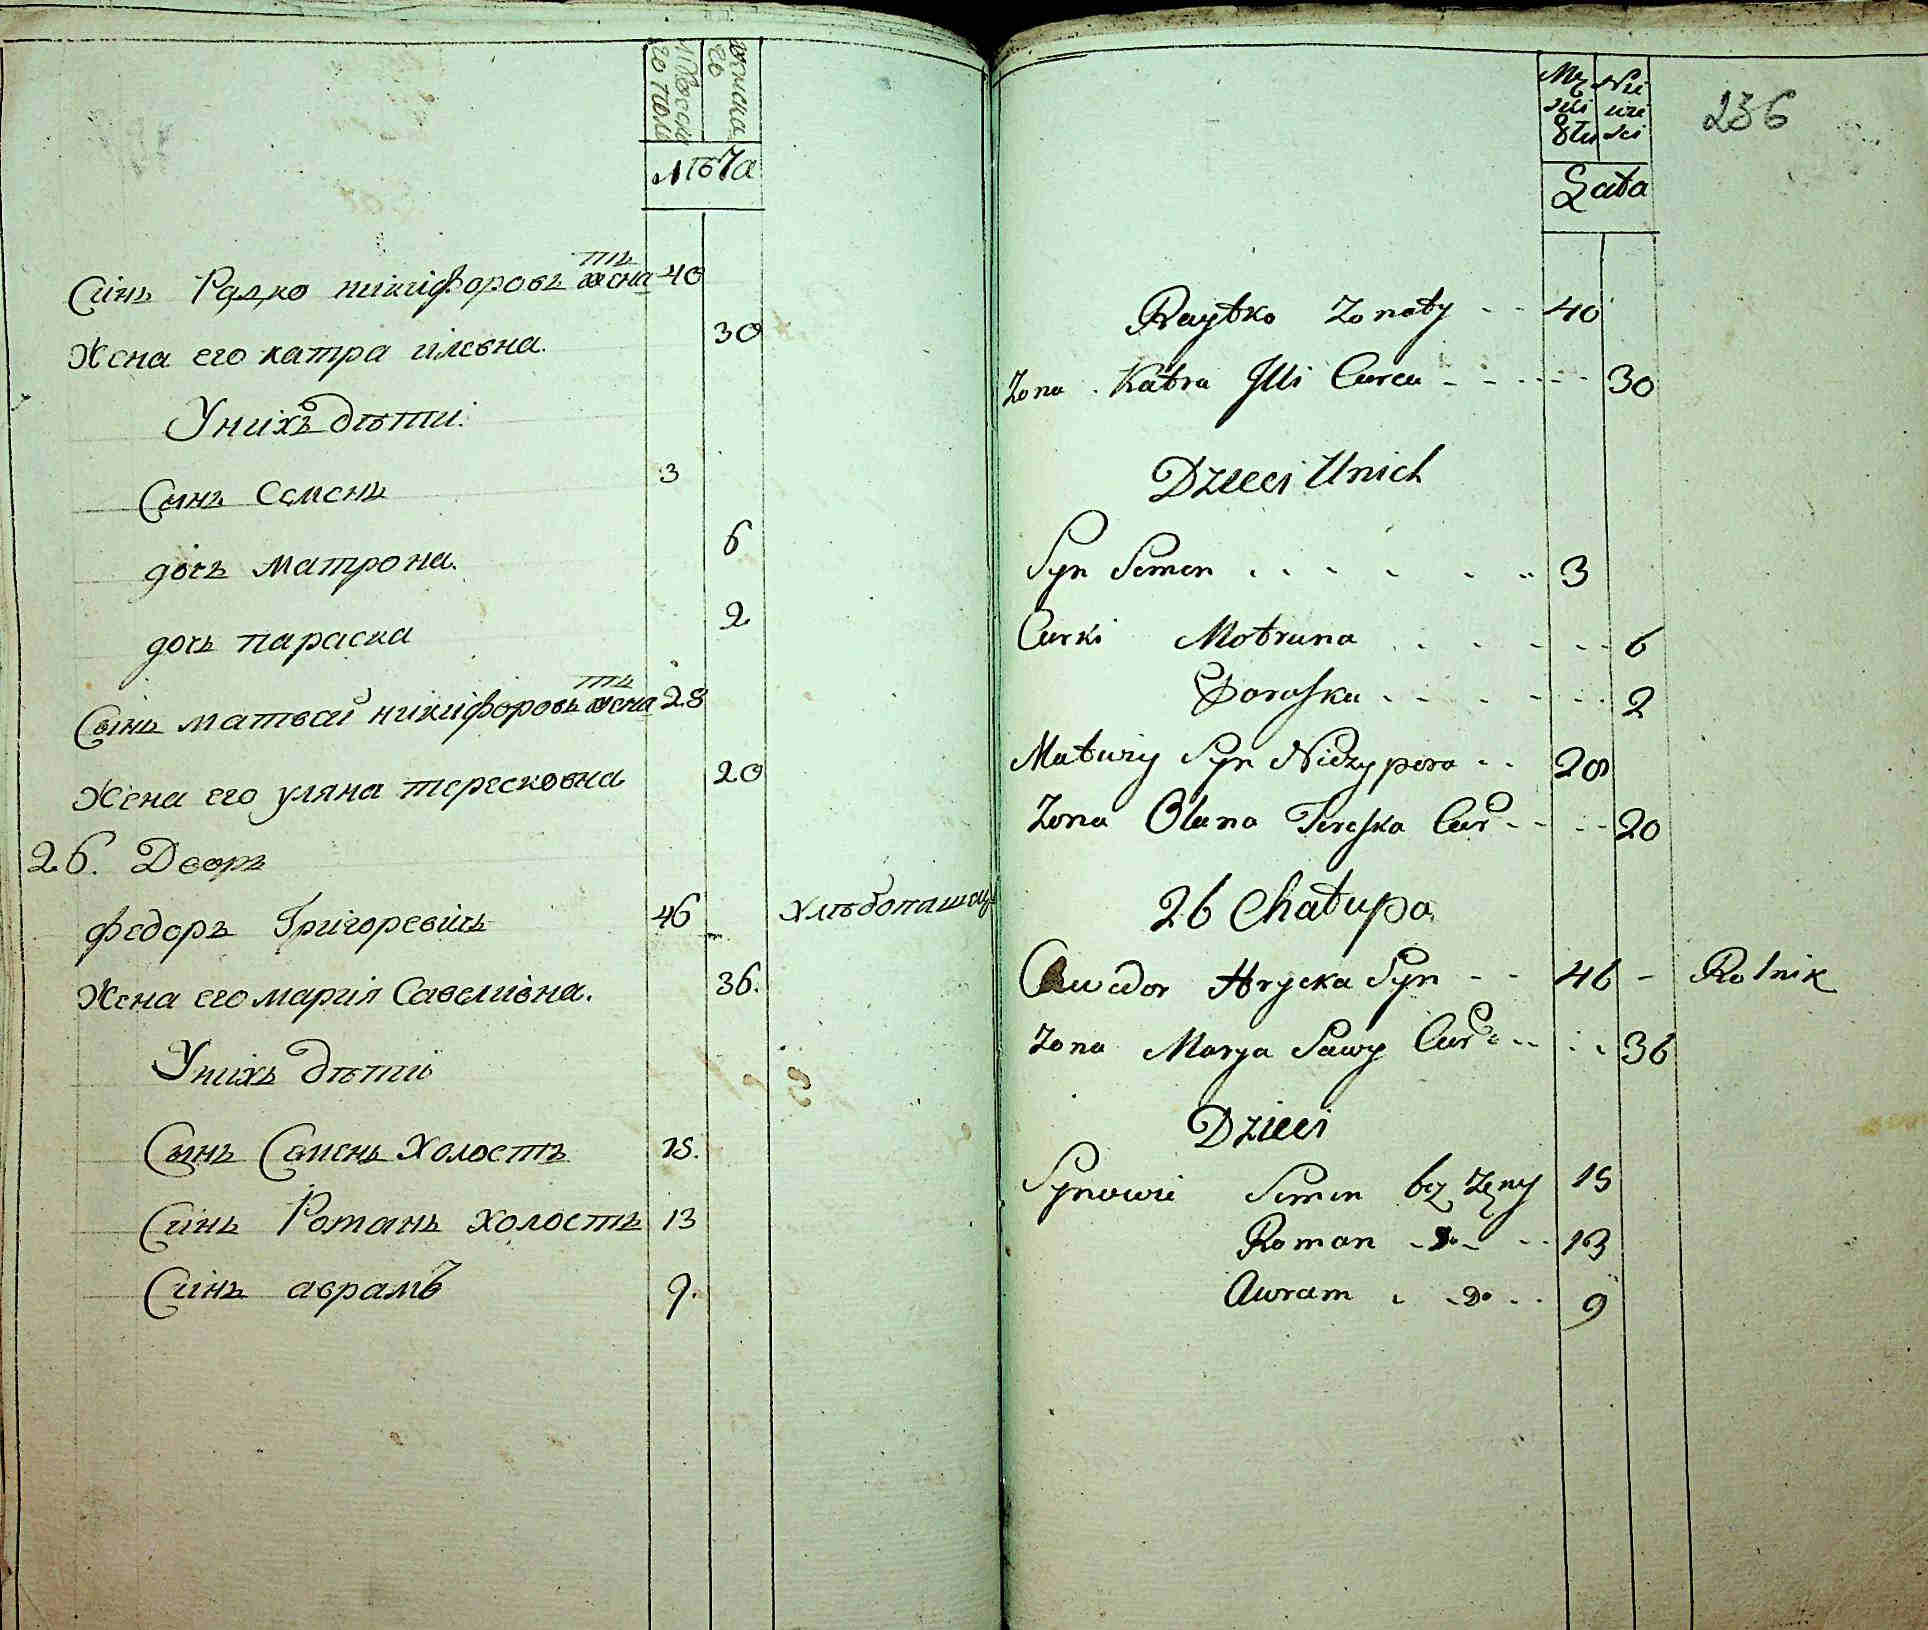 Мужеска
го полу
женска
го
лѣта
Синъ Радко никифоровъ женатъ 40
Жена его катра илевна. 30
У нихъ дѣти.
Сынъ Семенъ 3
дочъ матрона. 6
дочъ параска 2
Сынъ матвей никифоровъ женатъ 28
Жена его уляна тересковна 20
26. Дворъ
федоръ Григоревичъ 46 хлѣбопашецъ
Жена его мария Савеливна. 36.
У нихъ дѣти
Сынъ Семенъ холостъ 15.
Синъ Романъ холостъ 13
Синъ аврамъ 9.
236
Lata
Raytko Zonaty 40
Zona Katra Illi Curca 30
Dzieci Unich
Syn Semen 3
Curki Motruna 6
Paraska 2
Matwiy Syn Niczypora 28
Zona Olana Tereska Cur 20
26 Chałupa
Chwedor Hrycka Syn 46 Rolnik
Zona Marya Sawy Cur 36
Dzieci
Synowie Semen bez Żeny 15
Roman Do 13
Awram Do 9